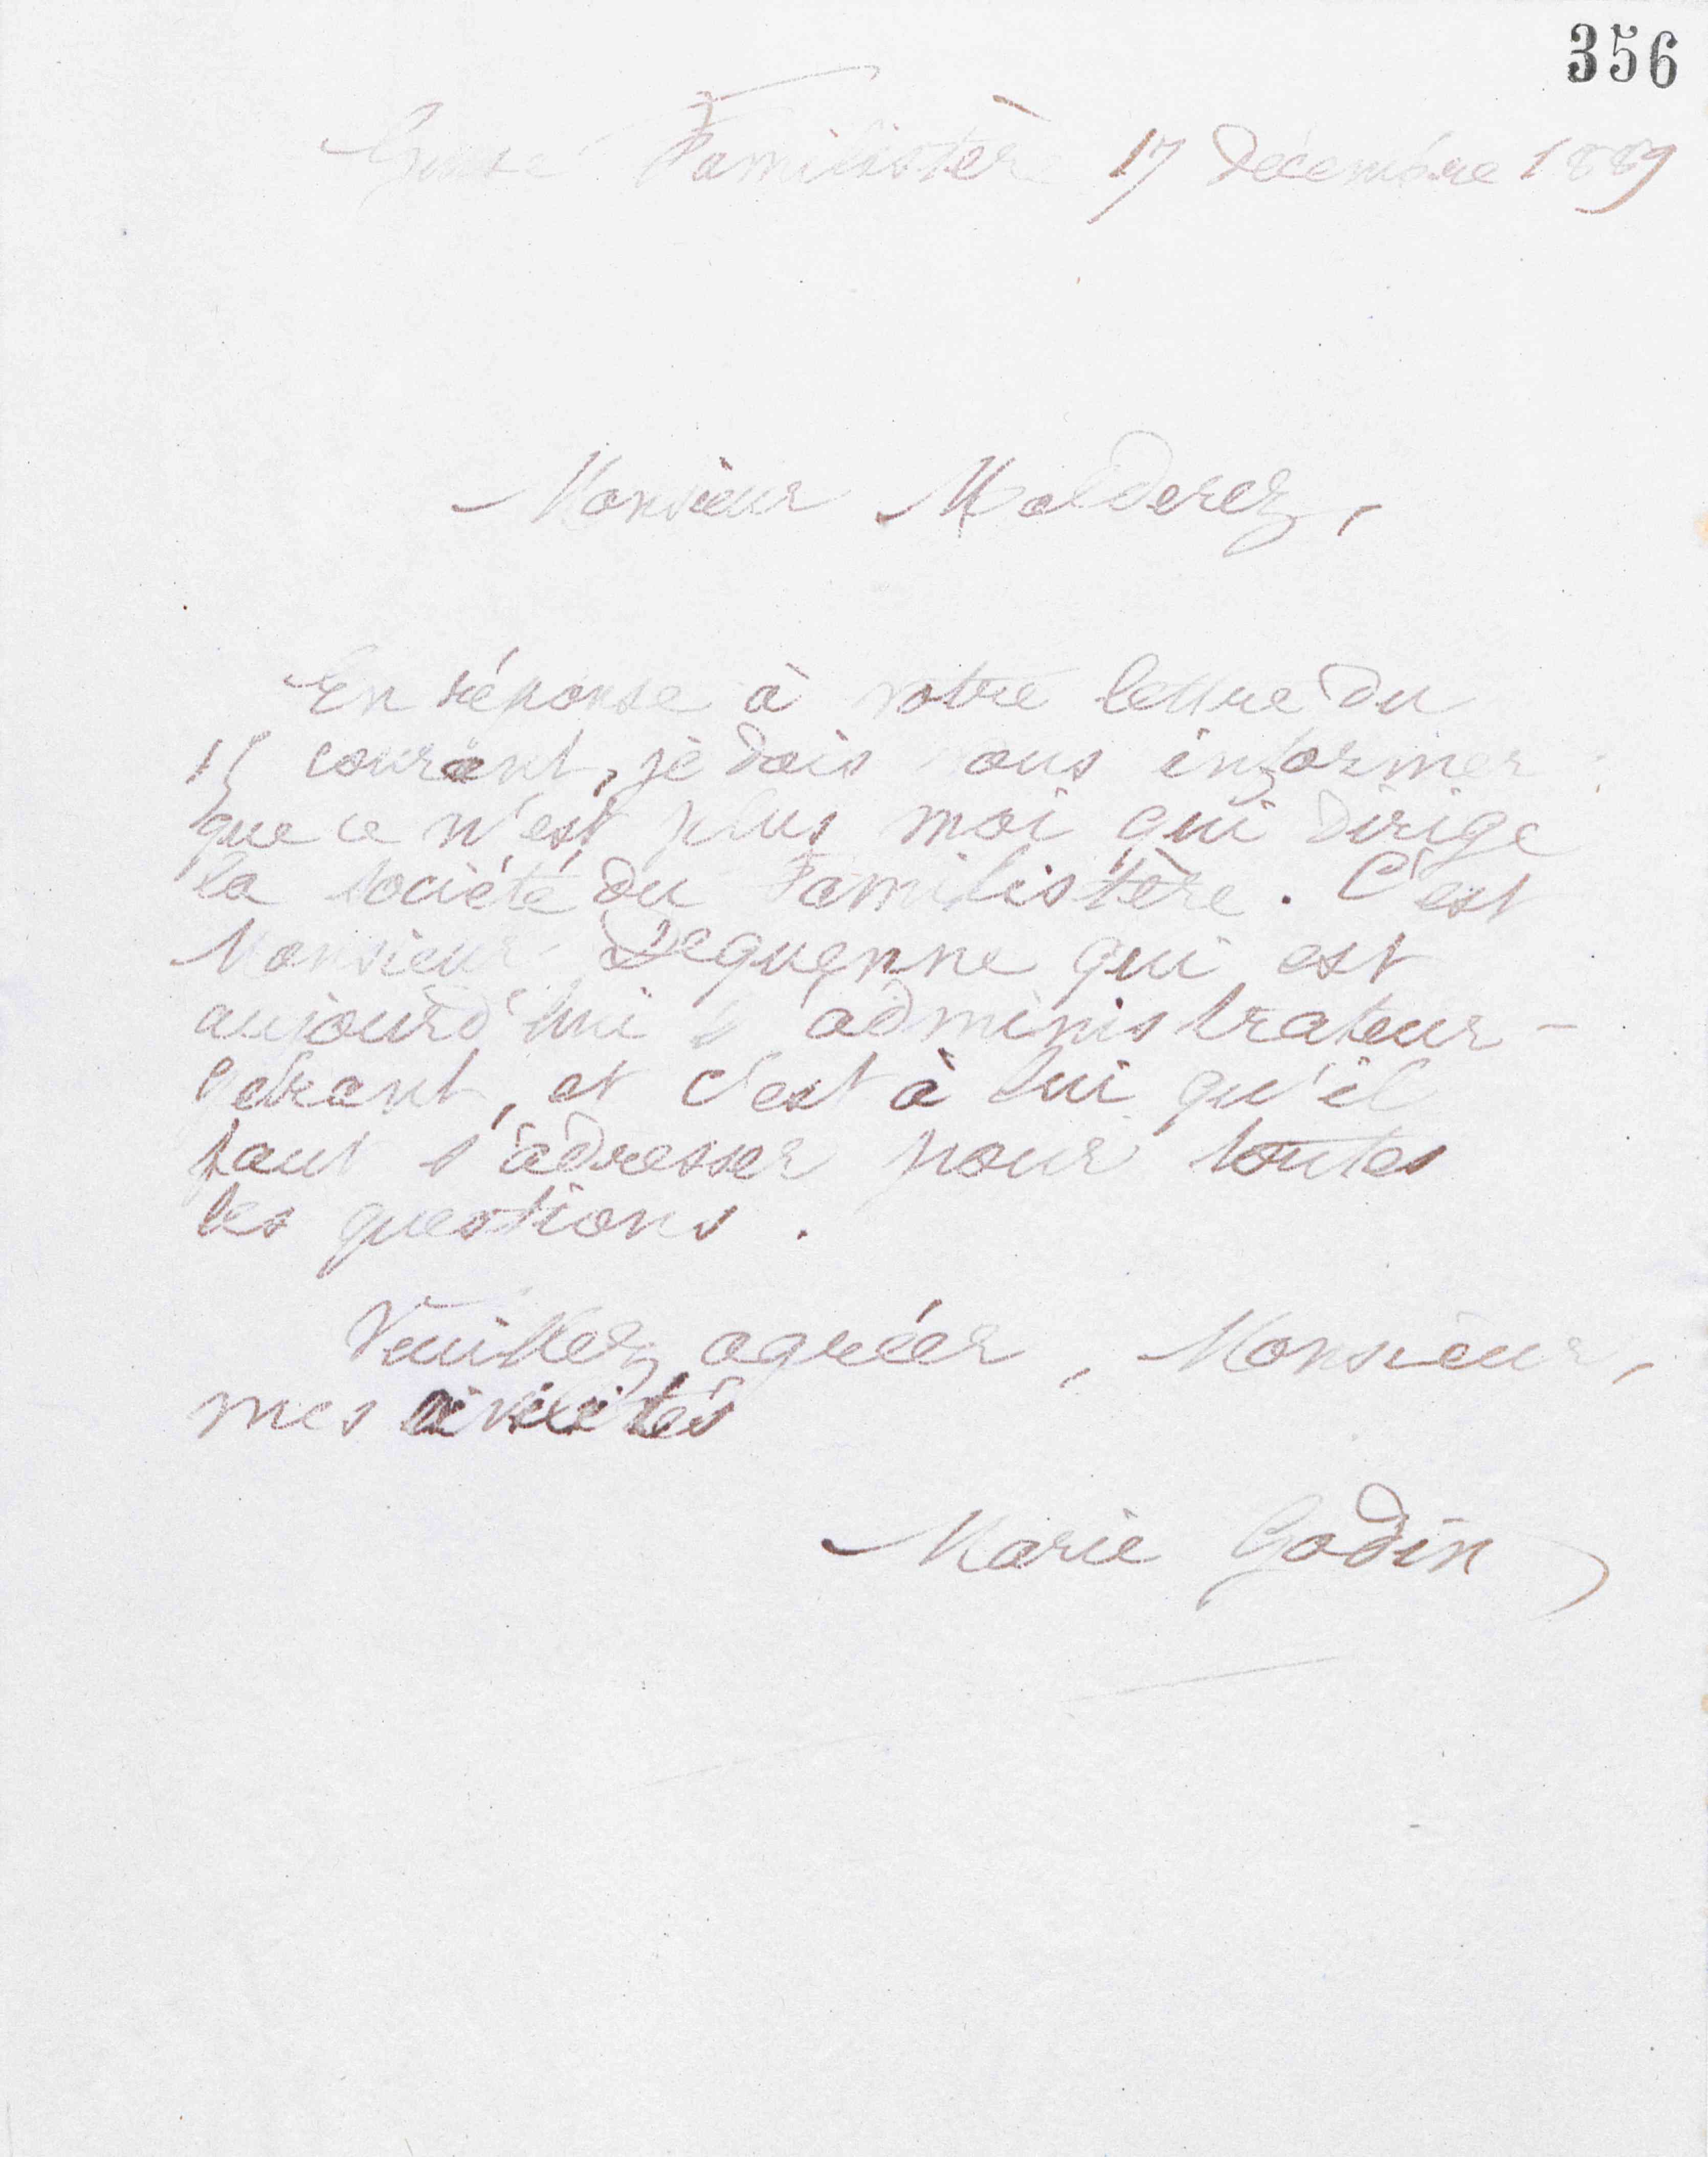 356
Guise Familistère 17 décembre 1889
Monsieur Malderez,
En réponse à votre lettre du
15 courant, je dois vous informer
que ce n'est plus moi qui dirige
la société du Familistère. C'est
Monsieur Dequenne qui est
aujourd'hui l'administrateur-
gérant, et c'est à lui qu'il
faut s'adresser pour toutes
les questions.
Veuillez agréer, Monsieur,
mes civilités
Marie Godin